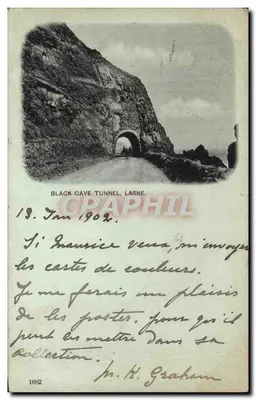 BLACK CAVE TUNNEL, LARNE.
CARTGRAPHIL
13 Jan 1902.
Si Maurice veus, m'envoyer
les cartes de couleurs.
Je me ferais un plaisir
de les poster. pour qu'il
peut les mettre dans sa
collection.
M. H. Graham
1082